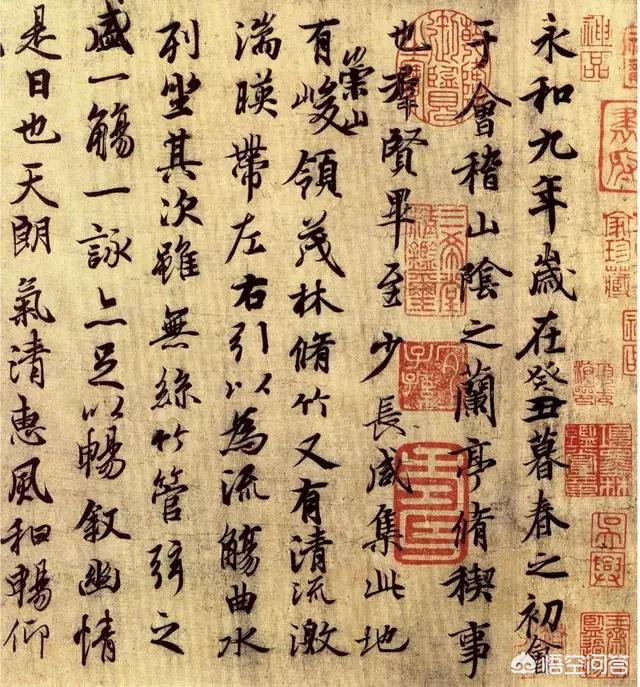 神品
永和九年歲在癸丑暮春之初會
于會稽山陰之蘭亭脩稧事
也羣賢畢至少長咸集此地
有崇山峻領茂林脩竹又有清流激
湍暎帶左右引以為流觴曲水
列坐其次雖無絲竹管弦之
盛一觴一詠亦足以暢叙幽情
是日也天朗氣清惠風和暢仰
三希堂精鑑璽
宜子孫
吳興
悟空问答